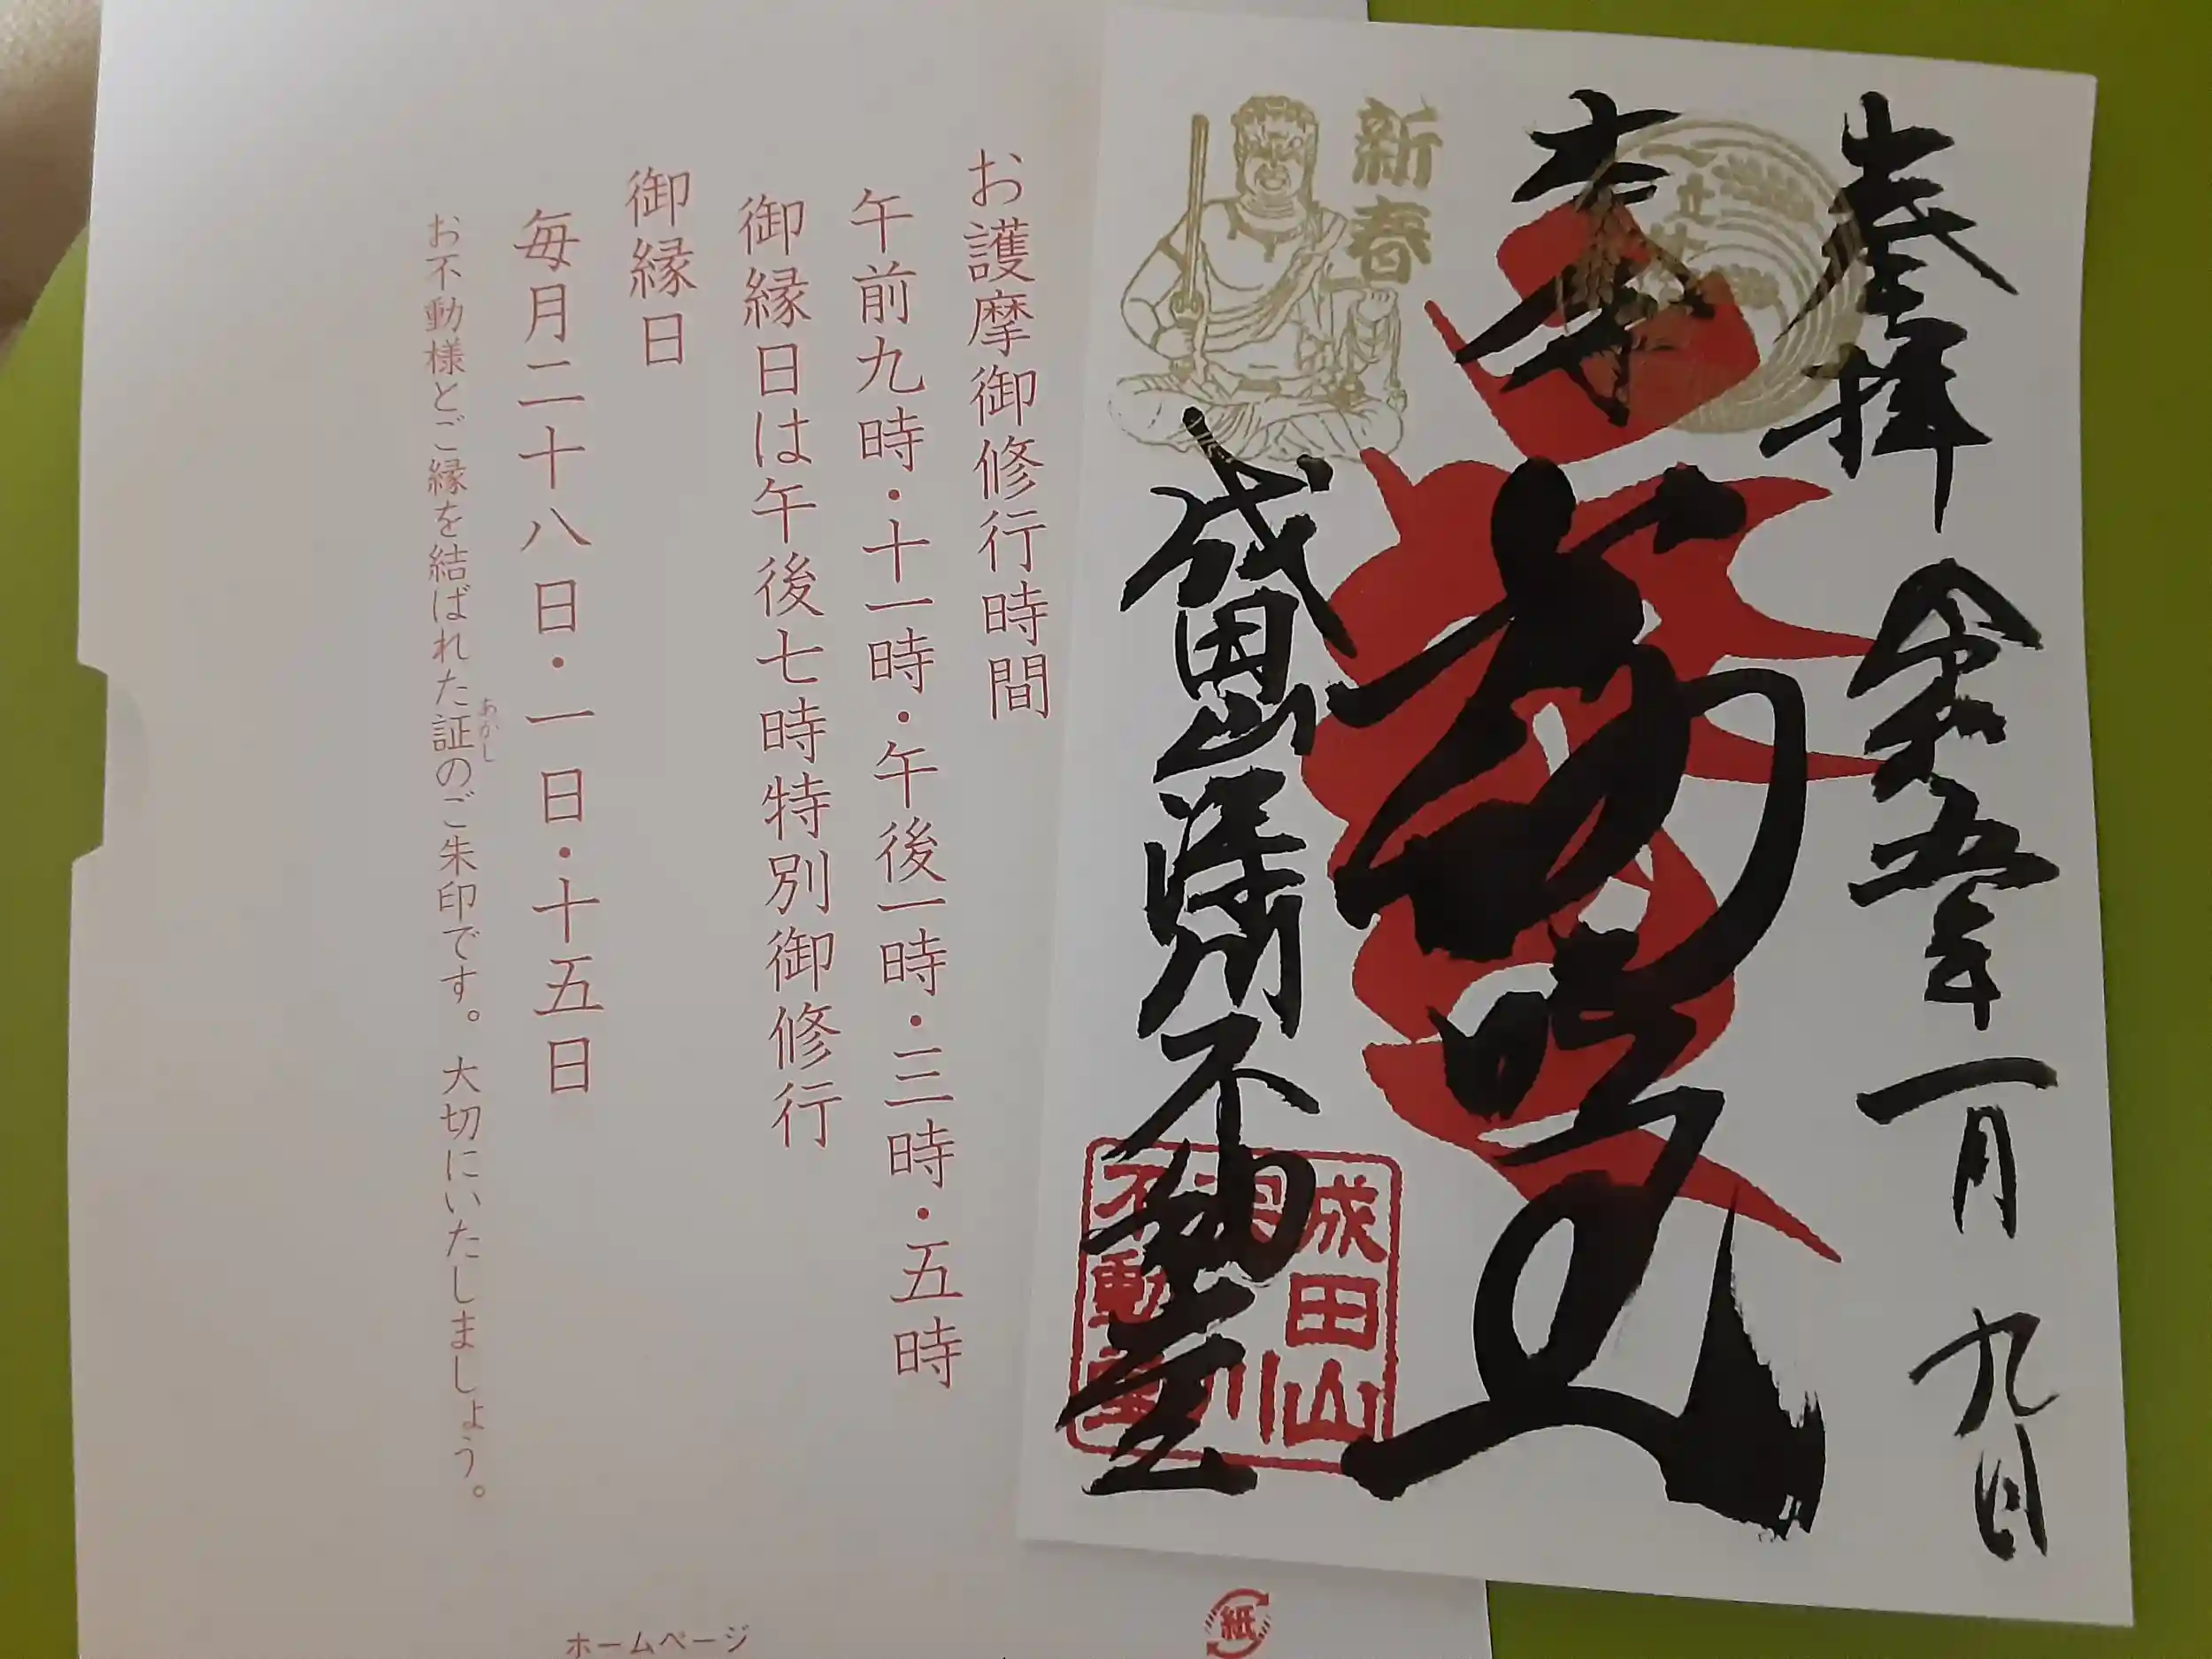 奉拝 令和五年一月九日
本尊
成田山深川不動堂
新春
成田山
深川
不動堂
お護摩御修行時間
午前九時・十一時・午後一時・三時・五時
御縁日は午後七時特別御修行
御縁日
毎月二十八日・一日・十五日
あかし
お不動様とご縁を結ばれた証のご朱印です。大切にいたしましょう。
ホームページ
紙